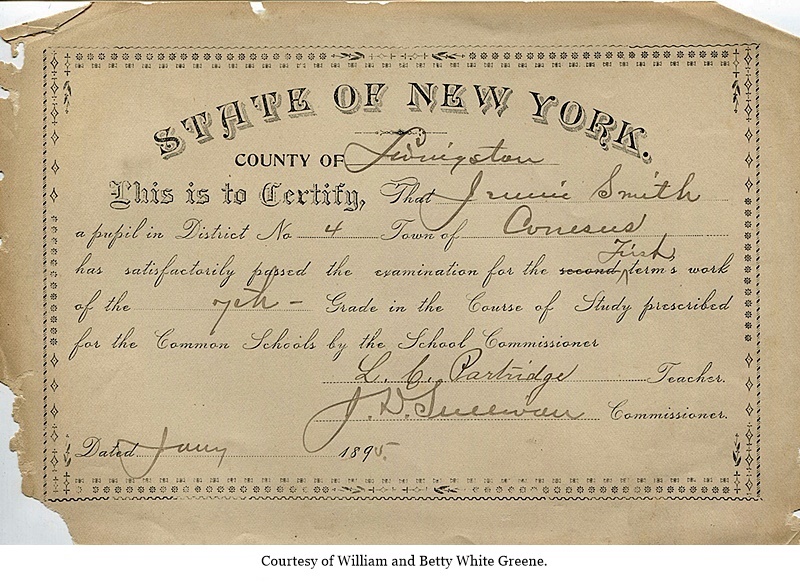 STATE OF NEW YORK.
COUNTY OF Livingston
This is to Certify, That Jennie Smith
a pupil in District No 4 Town of Conesus
First
has satisfactorily passed the examination for the second terms work
of the 7th - Grade in the Course of Study prescribed
for the Common Schools by the School Commissioner
L. C. Partridge Teacher.
J. D. Sullivan Commissioner.
Dated Jany 1895.
Courtesy of William and Betty White Greene.